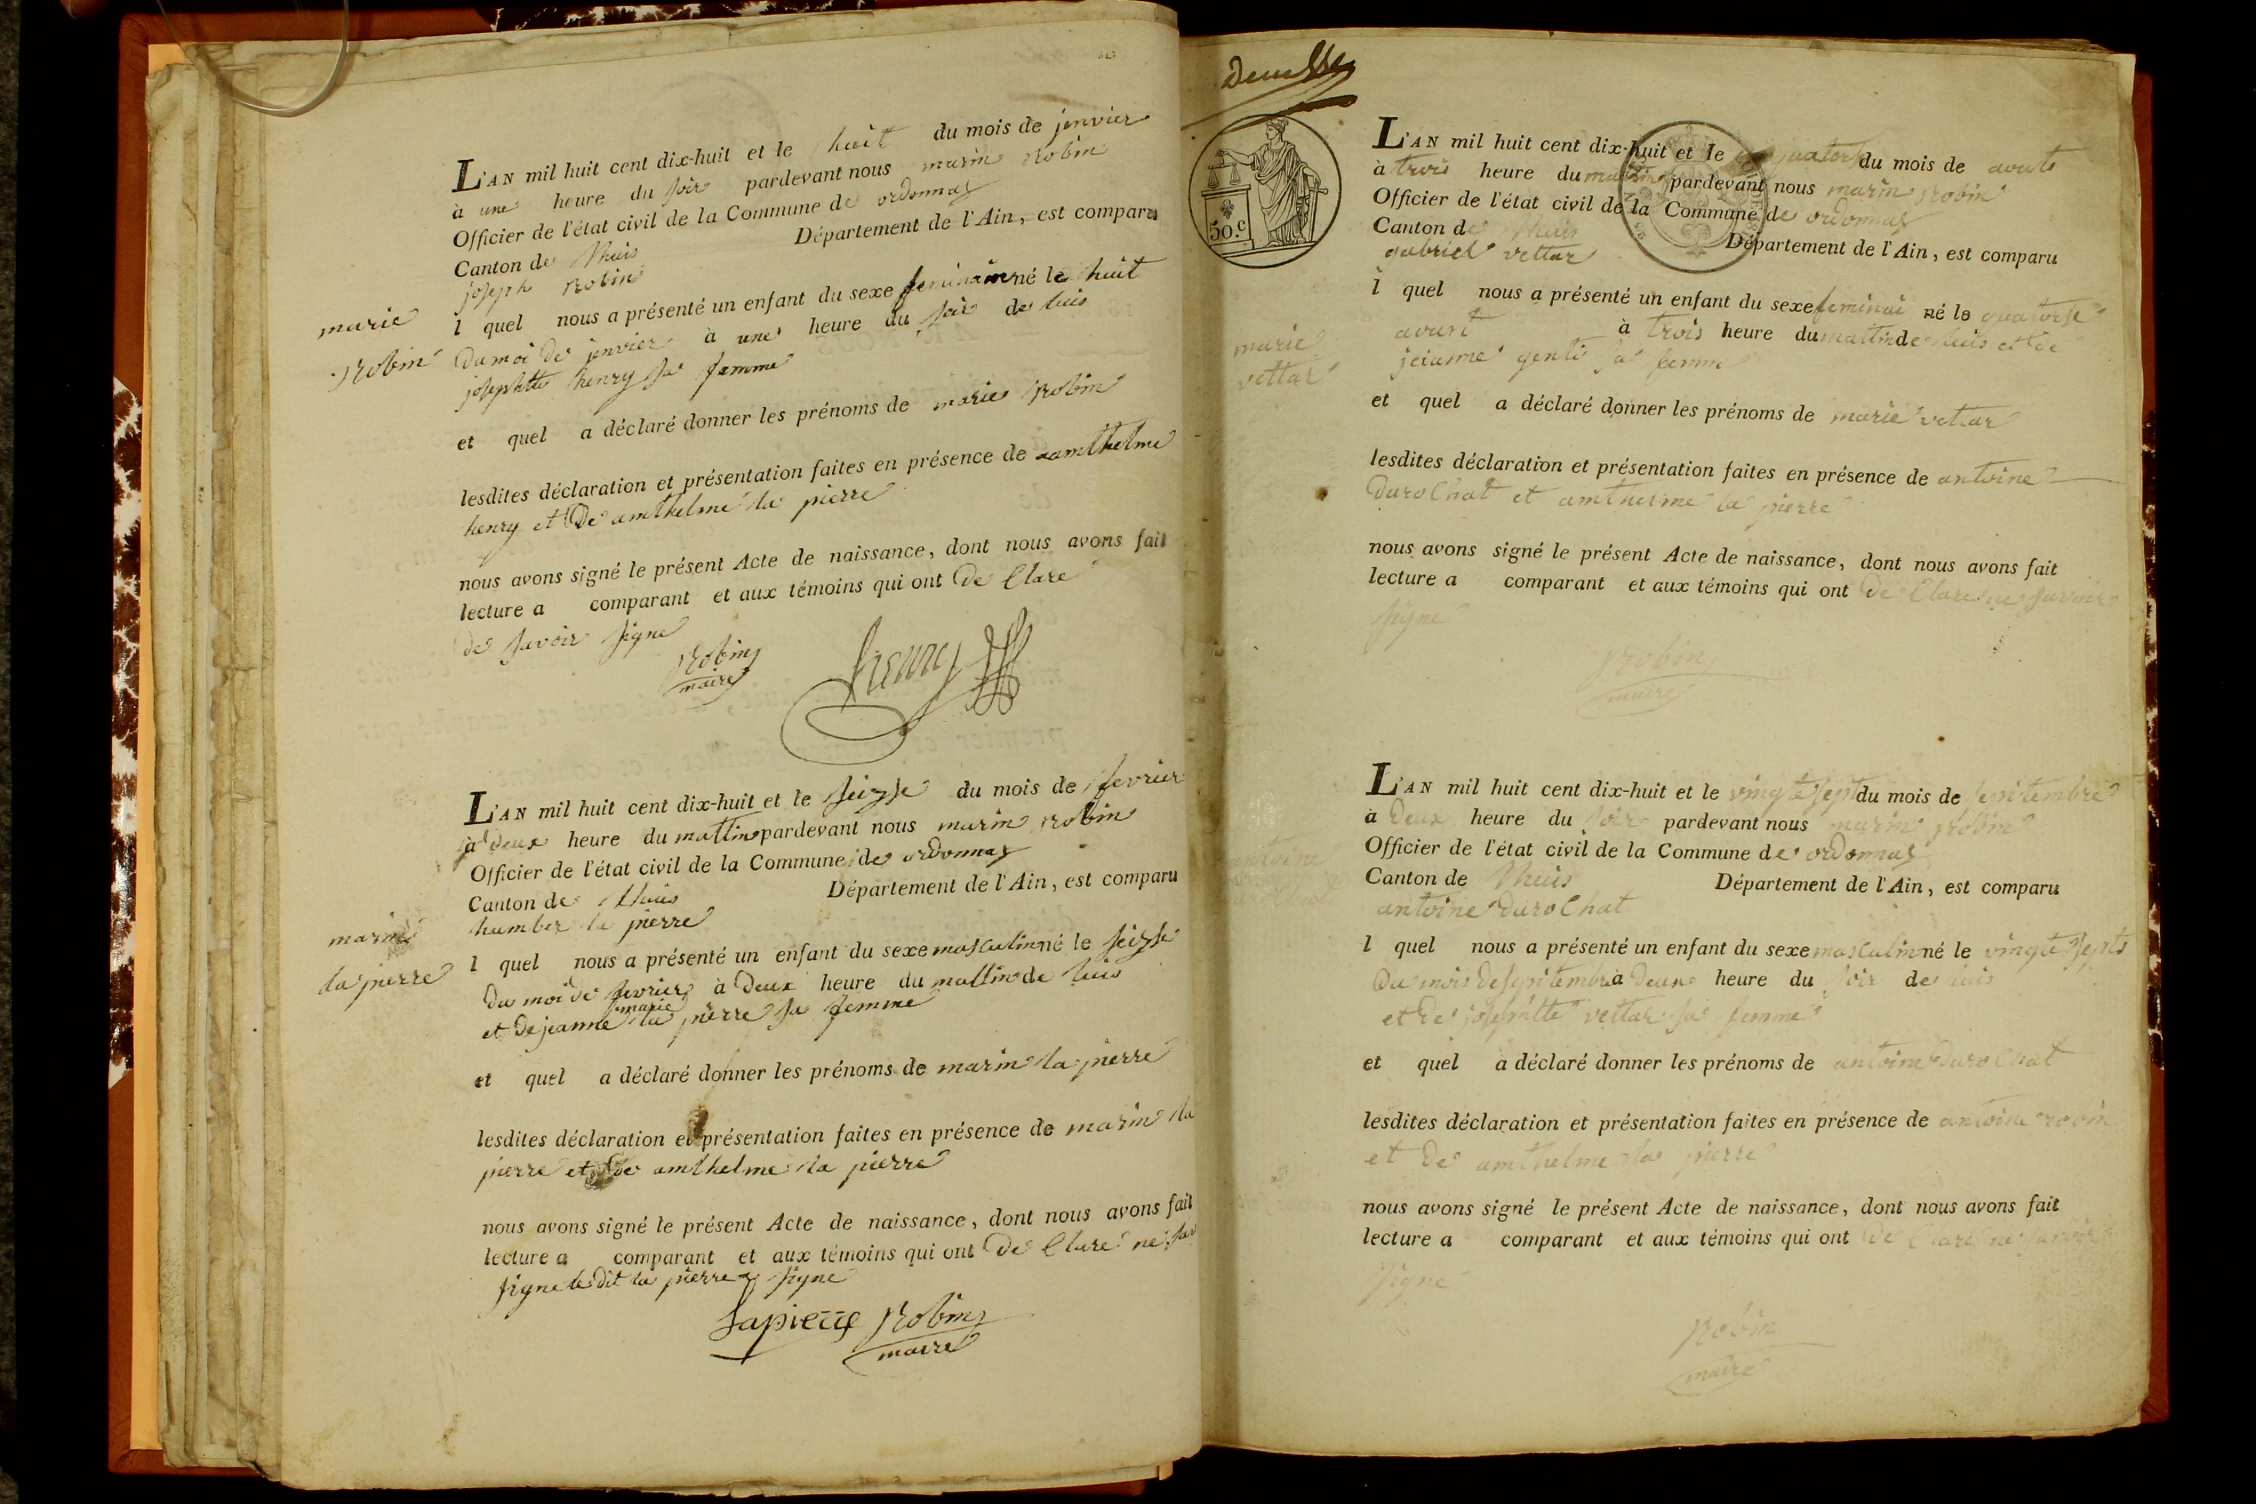 L'AN mil huit cent dix-huit et le huit du mois de jenvier
à une heure du soir pardevant nous marin Robin
Officier de l'état civil de la Commune de ordonnaz
Canton de lhuis Département de l'Ain, est comparu
joseph Robin
marie
Robin
l quel nous a présenté un enfant du sexe né le huit
du moi de jenvier à une heure du soir de luis
josephtte henry sa femme
et quel a déclaré donner les prénoms de marie Robin
lesdites déclaration et présentation faites en présence de amthelme
henry et de amthelme la pierre
nous avons signé le présent Acte de naissance, dont nous avons fait
lecture a comparant et aux témoins qui ont de Clare
de savoir signe
Robin
maire
henry
L'AN mil huit cent dix-huit et le seizse du mois de fevrier
à deux heure du mattin pardevant nous marin Robin
Officier de l'état civil de la Commune de ordonnaz
Canton de lhuis Département de l'Ain, est comparu
humber la pierre
marin
la pierre
l quel nous a présenté un enfant du sexe masculin né le seizse
du moi de fevrier à deux heure du mattin de luis
marie
et de jeanne la pierre sa femme
et quel a déclaré donner les prénoms de marin la pierre
lesdites déclaration et présentation faites en présence de marin la
pierre et de amthelme la pierre
nous avons signé le présent Acte de naissance, dont nous avons fait
lecture a comparant et aux témoins qui ont de Clare ne sav
signe le dit la pierre a signe
Lapierre Robin
maire
50.c
L'AN mil huit cent dix-huit et le du mois de avuts
à trois heure du matin pardevant nous marin Robin
Officier de l'état civil de la Commune de ordonnaz
Canton de lhuis Département de l'Ain, est comparu
gabriel vettar
marie
vettar
l quel nous a présenté un enfant du sexe feminai né le quatorse
avust à trois heure du mattin de luis et de
jeianne genti sa femme
et quel a déclaré donner les prénoms de marie vettar
lesdites déclaration et présentation faites en présence de antoine
duroChat et amthelme la pierre
nous avons signé le présent Acte de naissance, dont nous avons fait
lecture a comparant et aux témoins qui ont de Clare ne savoir
signe
Robin
maire
L'AN mil huit cent dix-huit et le vingte sept du mois de septembre
à deux heure du soir pardevant nous marin Robin
Officier de l'état civil de la Commune de ordonnaz
Canton de lhuis Département de l'Ain, est comparu
antoine duroChat
antoine
duroChat
l quel nous a présenté un enfant du sexe masculin né le vingte septs
du mois de septembre à deux heure du soir de luis
et de josephtte vettar sa femme
et quel a déclaré donner les prénoms de antoine duroChat
lesdites déclaration et présentation faites en présence de antoine robin
et de amthelme la pierre
nous avons signé le présent Acte de naissance, dont nous avons fait
lecture a comparant et aux témoins qui ont de Clare ne savoir
signe
Robin
maire